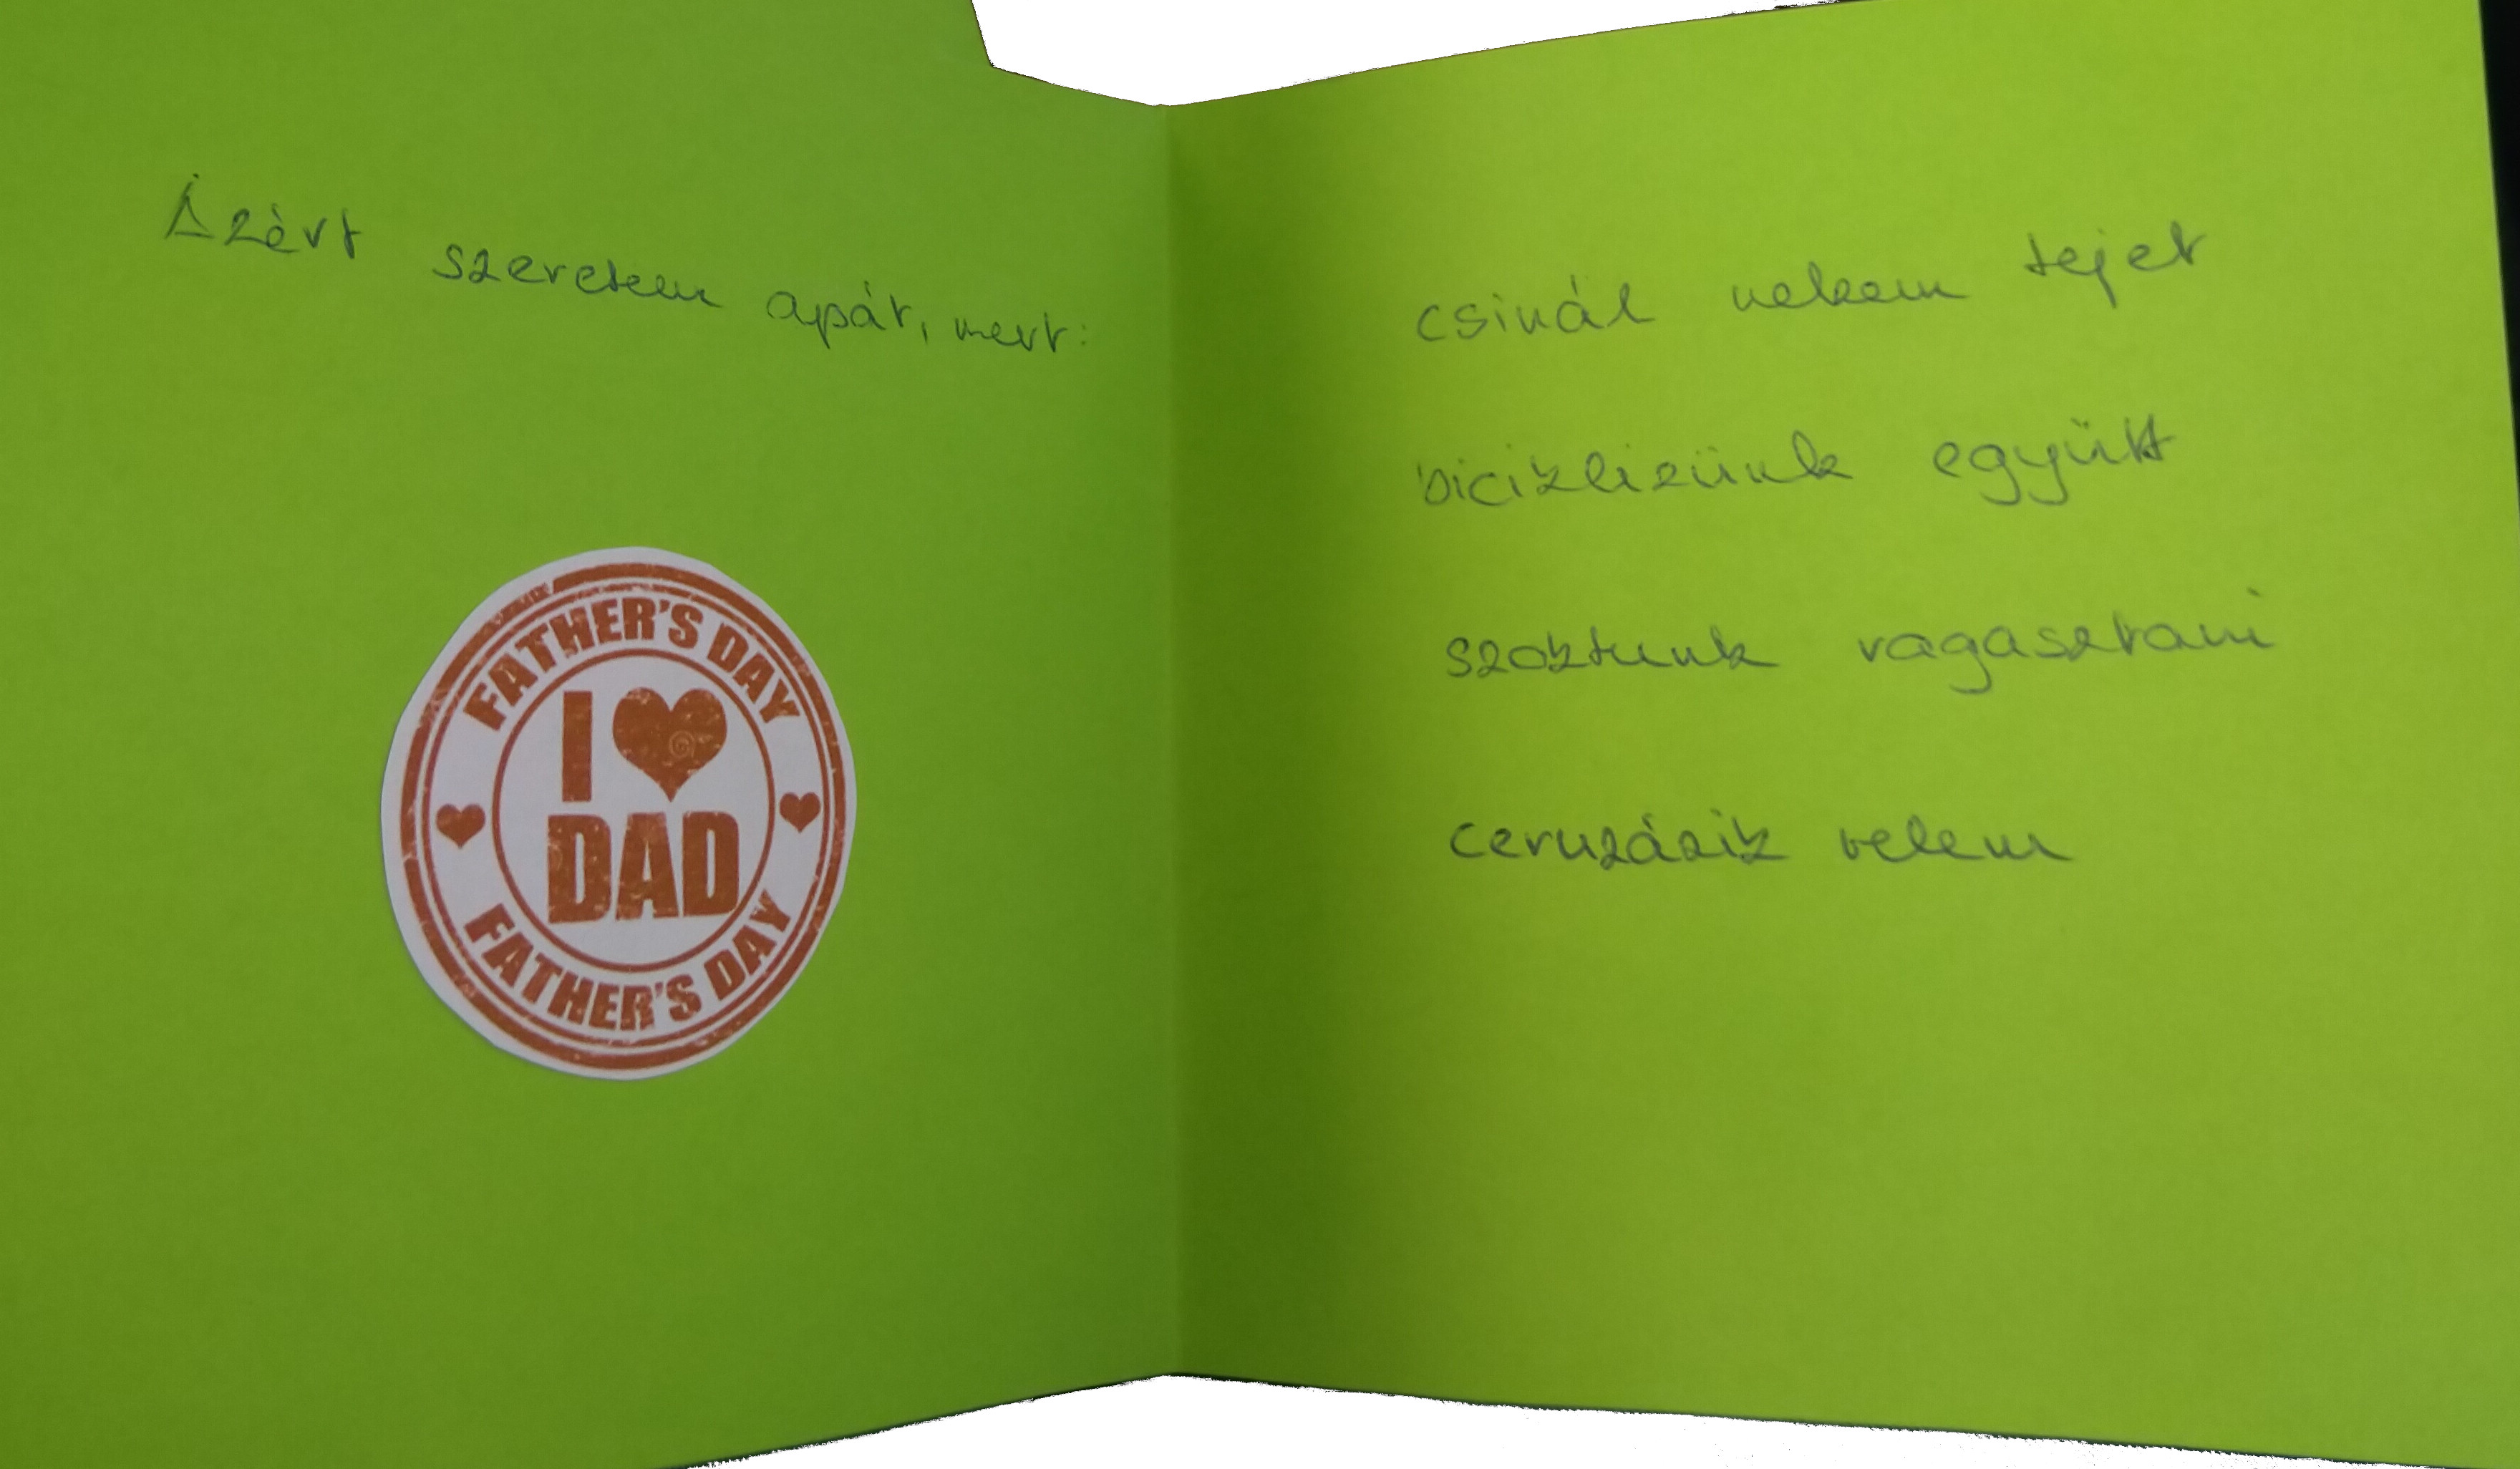 Azért szeretem apát, mert:
FATHER'S DAY
I ♥
DAD
FATHER'S DAY
csinál nekem tejet
biciklizünk együtt
szoktunk ragasztani
ceruzázik velem